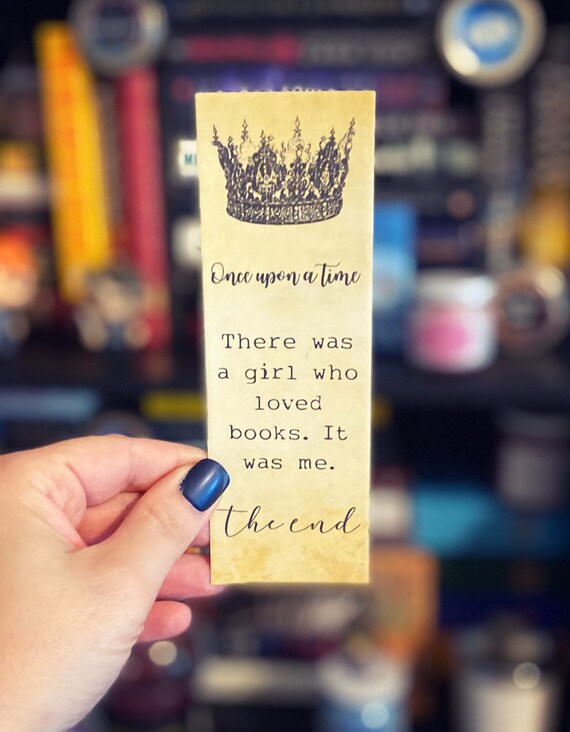 Once upon a time
There was
a girl who
loved
books. It
was me.
the end